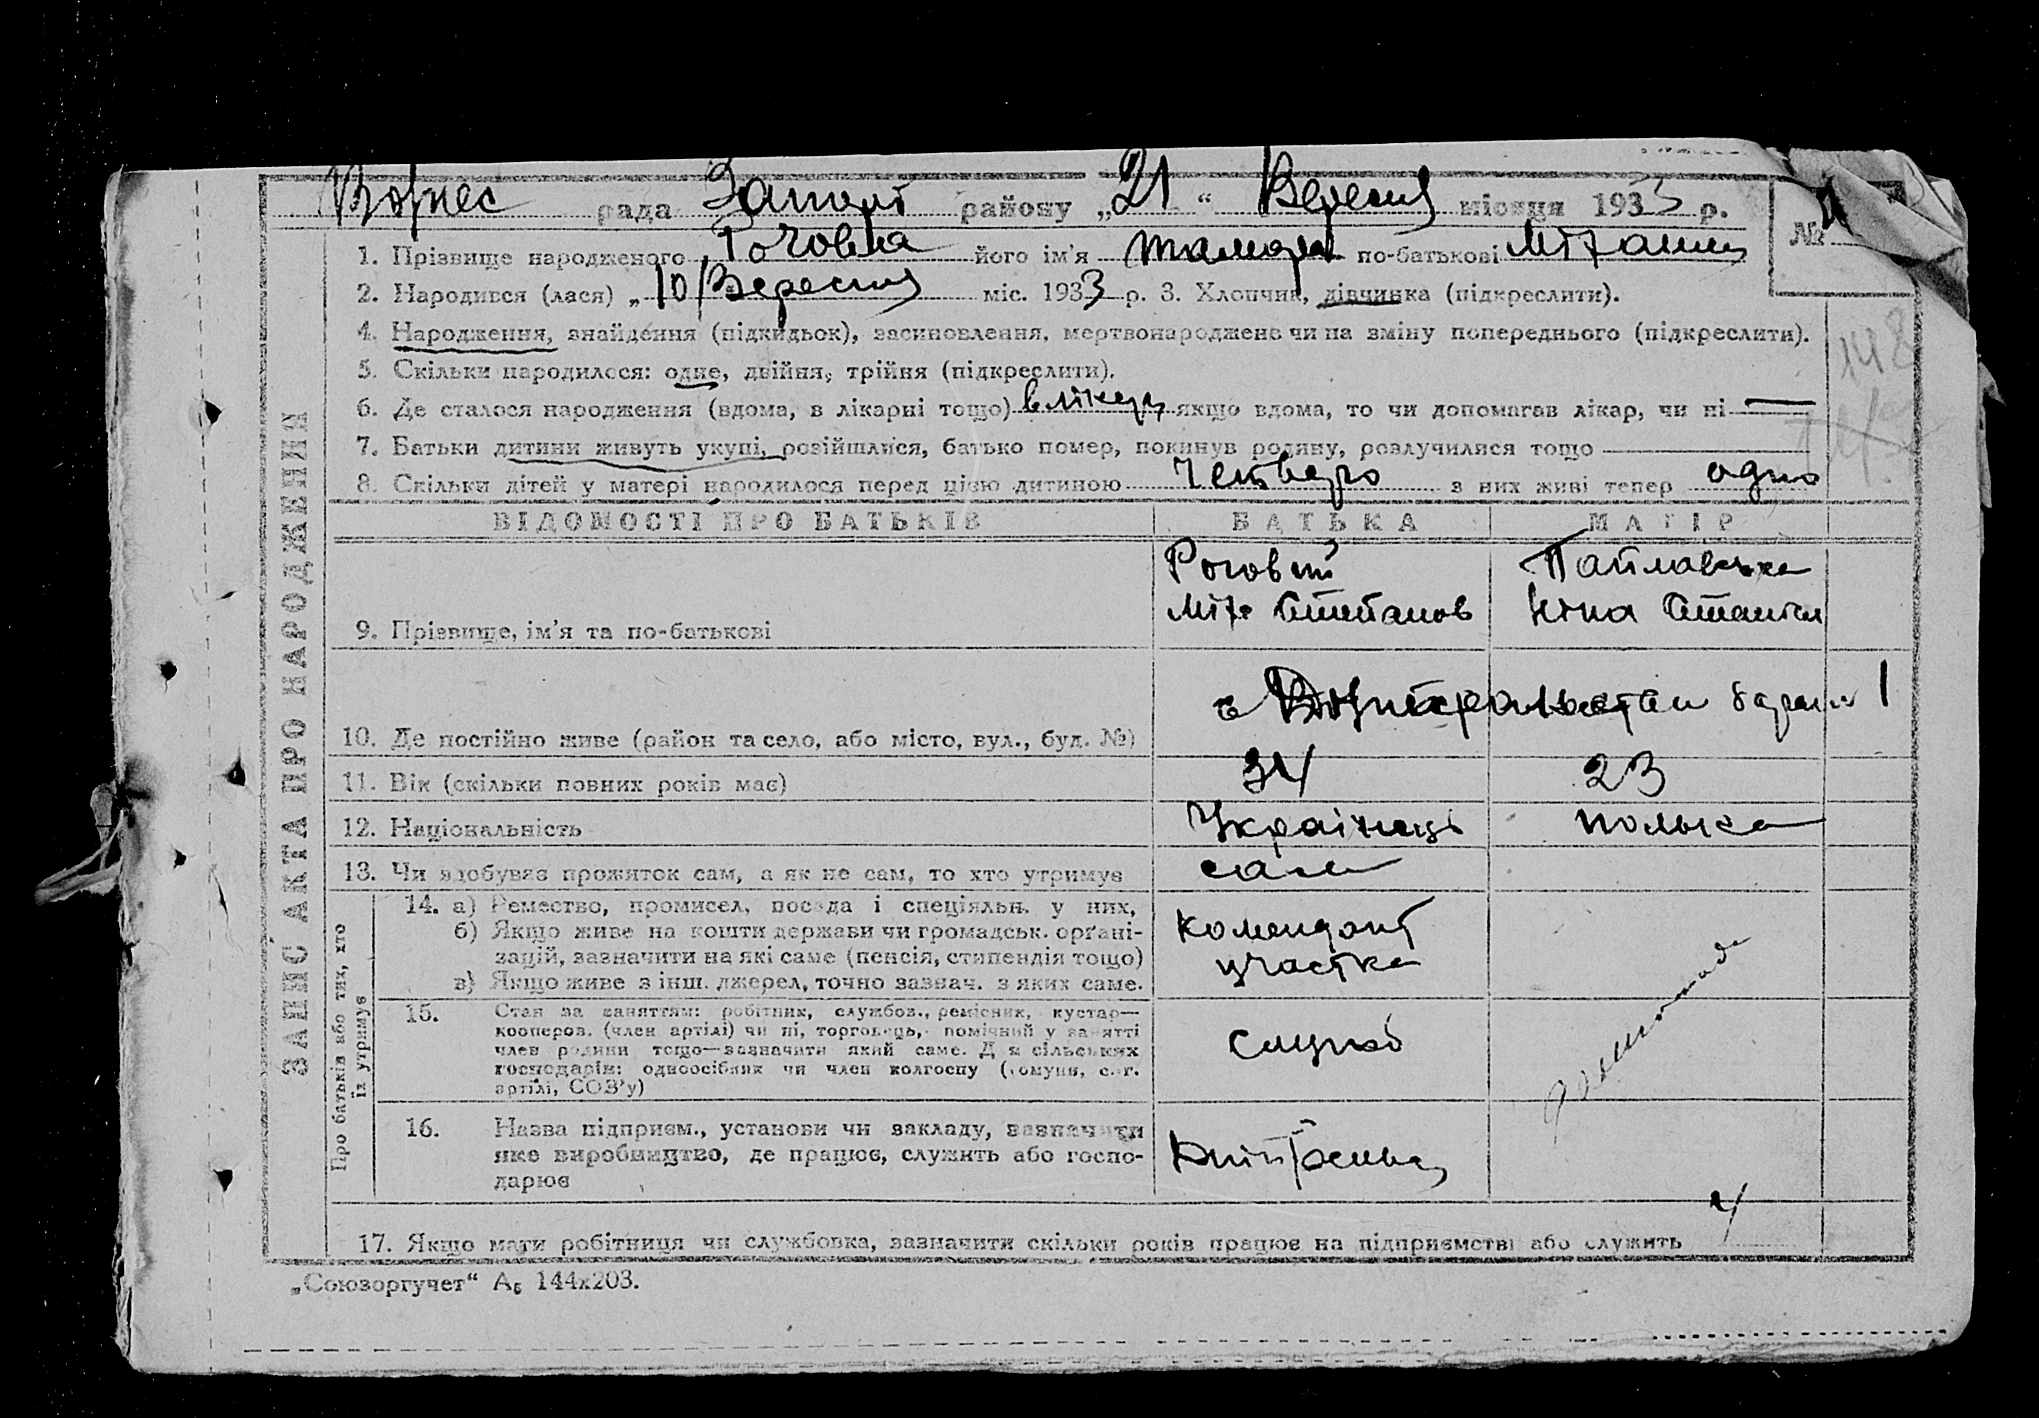 Вознес рада Запоріз району „21“ Вересня місяця 1933 р.
№
1. Прізвище народженого Роговна його ім'я Тамара по-батькові Міхайл
2. Народився (лася) „10 Вересня міс. 1933 р. 3. Хлопчик, дівчинка (підкреслити).
4. Народження, знайдення (підкидьок), засиновлення, мертвонароджене чи на зміну попереднього (підкреслити).
148
5. Скільки народилося: одне, двійня, трійня (підкреслити).
6. Де сталося народження (вдома, в лікарні тощо) в лікар якщо вдома, то чи допомагав лікар, чи ні —
7. Батьки дитини живуть укупі, розійшлися, батько помер, покинув родину, розлучилися тощо
8. Скільки дітей у матері народилося перед цією дитиною Четверо з них живі тепер одно
ЗАПИС АКТА ПРО НАРОДЖЕННЯ
ВІДОМОСТІ ПРО БАТЬКІВ БАТЬКА МАТІР
Роговий
Міх Степанов Ніна
9. Прізвище, ім'я та по-батькові
барак 1
10. Де постійно живе (район та село, або місто, вул., буд. №)
11. Вік (скільки повних років має) 34 23
12. Національність Українець полька
13. Чи здобуває прожиток сам, а як не сам, то хто утримує сам
Про батьків або тих, хто
їх утримує
14. а) Ремество, промисел, посада і спеціяльн. у них,
б) Якщо живе на кошти держави чи громадськ. органі-
зацій, зазначити на які саме (пенсія, стипендія тощо)
в) Якщо живе з інш. джерел, точно зазнач. з яких саме.
Комендант
участка
15. Стан за заняттям: робітник, службов., ремісник, кустар—
кооперов. (член артілі) чи ні, торговець, помічний у занятті
член родини тощо—зазначити який саме. Для сільських
господарів: одноосібник чи член колгоспу (комуни, с.-г.
артілі, СОЗ'у)
служб
домогосп
16. Назва підприєм., установи чи закладу, зазначити
яке виробництво, де працює, служить або госпо-
дарює
17. Якщо мати робітниця чи службовка, зазначити скільки років працює на підприємстві або служить
„Союзоргучет“ А₅ 144х203.